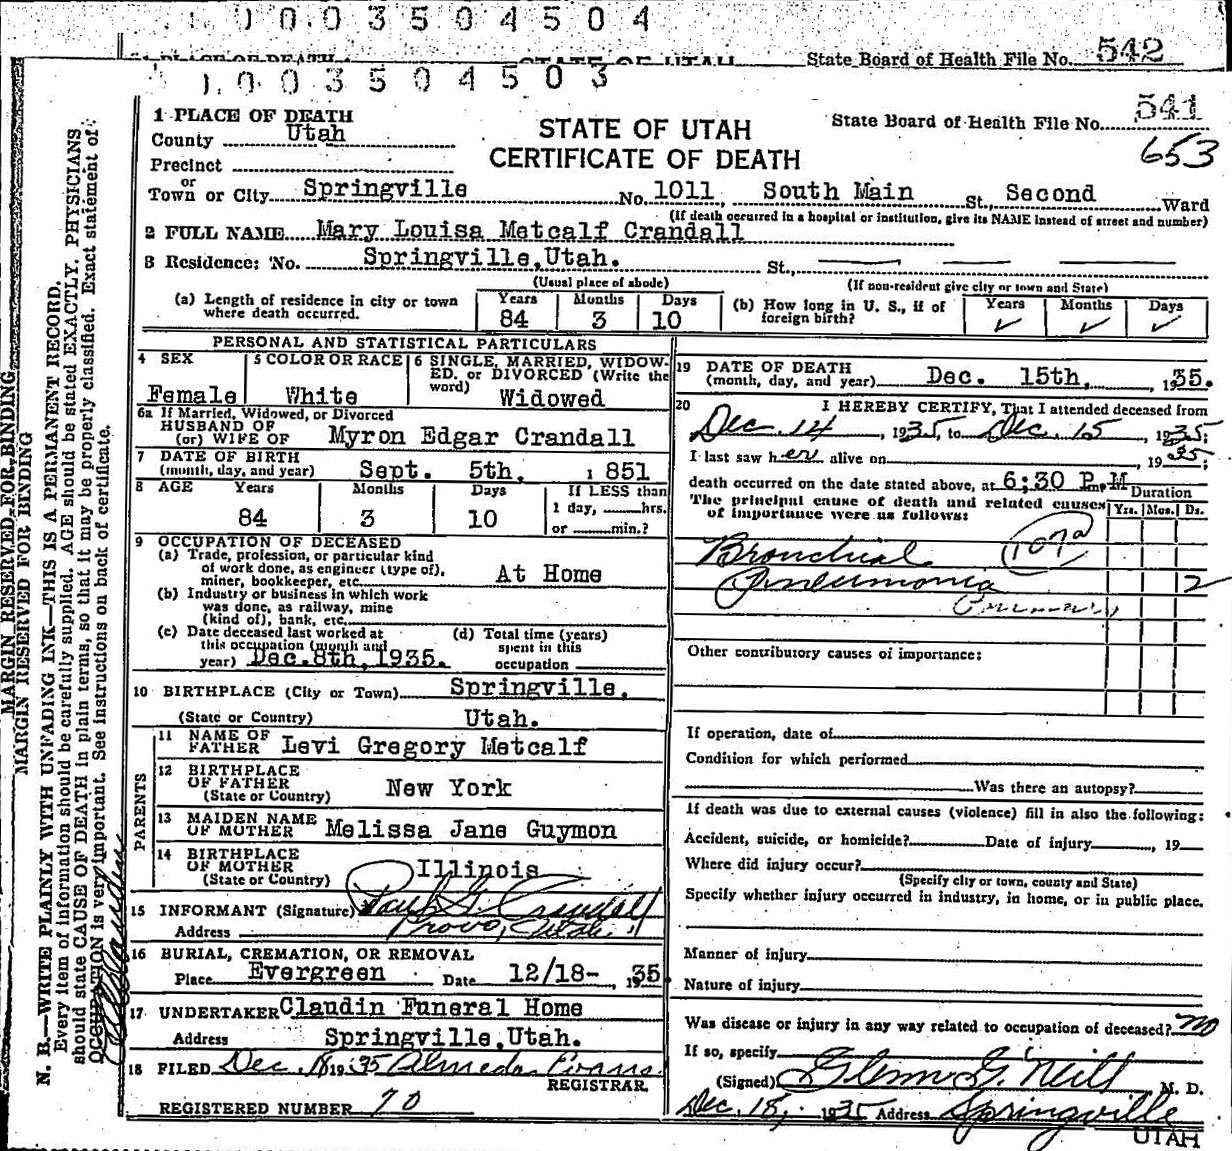 1 0 0 3 5 0 4 5 0 4
State Board of Health File No. 542
1 0 0 3 5 0 4 5 0 3
541
1 PLACE OF DEATH
County Utah
STATE OF UTAH
CERTIFICATE OF DEATH
State Board of Health File No.
653
Precinct
or
Town or City Springville No. 1011, South Main St., Second Ward
(If death occurred in a hospital or institution, give its NAME instead of street and number)
2 FULL NAME Mary Louisa Metcalf Crandall
3 Residence: No. Springville, Utah. St.,
(Usual place of abode) (If non-resident give city or town and State)
(a) Length of residence in city or town where death occurred. Years 84 Months 3 Days 10
(b) How long in U. S., if of foreign birth? Years ✓ Months ✓ Days ✓
PERSONAL AND STATISTICAL PARTICULARS
4 SEX Female
5 COLOR OR RACE White
6 SINGLE, MARRIED, WIDOWED, or DIVORCED (Write the word) Widowed
6a If Married, Widowed, or Divorced
HUSBAND OF
(or) WIFE OF Myron Edgar Crandall
7 DATE OF BIRTH
(month, day, and year) Sept. 5th, 1851
8 AGE Years 84 Months 3 Days 10
If LESS than
1 day, hrs.
or min.?
9 OCCUPATION OF DECEASED
(a) Trade, profession, or particular kind
of work done, as engineer (type of),
miner, bookkeeper, etc. At Home
(b) Industry or business in which work
was done, as railway, mine
(kind of), bank, etc.
(c) Date deceased last worked at
this occupation (month and
year) Dec. 8th, 1935.
(d) Total time (years)
spent in this
occupation
10 BIRTHPLACE (City or Town) Springville,
(State or Country) Utah.
PARENTS
11 NAME OF
FATHER Levi Gregory Metcalf
12 BIRTHPLACE
OF FATHER
(State or Country) New York
13 MAIDEN NAME
OF MOTHER Melissa Jane Guymon
14 BIRTHPLACE
OF MOTHER
(State or Country) Illinois
15 INFORMANT (Signature) Crandall
Address Provo, Utah.
16 BURIAL, CREMATION, OR REMOVAL
Place Evergreen Date 12/18-, 1935.
17 UNDERTAKER Claudin Funeral Home
Address Springville, Utah.
18 FILED Dec. 18 1935 Almeda Evans
REGISTRAR
REGISTERED NUMBER 70
19 DATE OF DEATH
(month, day, and year) Dec. 15th, 1935.
20 I HEREBY CERTIFY, That I attended deceased from
Dec. 14, 1935, to Dec. 15, 1935;
I last saw her alive on , 1935;
death occurred on the date stated above, at 6:30 P.M
The principal cause of death and related causes
of importance were as follows:
Duration
Yrs. Mos. Ds.
Bronchial 107a
Pneumonia 2
Other contributory causes of importance:
If operation, date of
Condition for which performed
Was there an autopsy?
If death was due to external causes (violence) fill in also the following:
Accident, suicide, or homicide? Date of injury , 19
Where did injury occur?
(Specify city or town, county and State)
Specify whether injury occurred in industry, in home, or in public place.
Manner of injury
Nature of injury
Was disease or injury in any way related to occupation of deceased? no
If so, specify
(Signed) M. D.
Dec. 18, 1935 Address Springville
UTAH
MARGIN RESERVED FOR BINDING
MARGIN RESERVED FOR BINDING
N. B.—WRITE PLAINLY WITH UNFADING INK—THIS IS A PERMANENT RECORD.
Every item of information should be carefully supplied. AGE should be stated EXACTLY. PHYSICIANS
should state CAUSE OF DEATH in plain terms, so that it may be properly classified. Exact statement of
OCCUPATION is very important. See instructions on back of certificate.